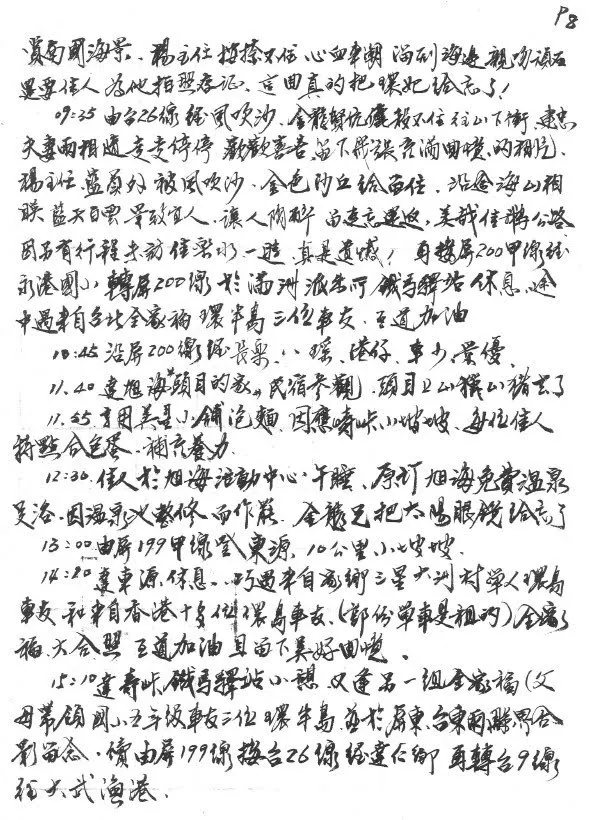 P8
賞南國海景、楊主任按捺不住心血來潮 溜到海邊親吻頑石
還要佳人為他拍照存証、這回真的把環妃給忘了!
09:35 由台26線經風吹沙、金龍賢伉儷按不住往山下衝、
夫妻兩相隨走走停停 歡歡喜喜留下張張充滿回憶的相片、
楊主任、藍員外被風吹沙、金色沙丘給留住、沿途海山相
聯藍天白雲 景致宜人、讓人陶醉 留連忘返、美哉佳鵝公路
因另有行程未訪佳樂水一遊、真是遺憾! 再接屏200甲線經
永港國小轉屏200線於滿洲 鐵馬驛站休息、途
中遇來自台北全家福環半島三位車友、互道加油
10:45 沿屏200線經長樂、八瑤、港仔、車少景優、
11.40 達旭海"頭目的家"民宿參觀、頭目上山獵山豬去了
11.55 享用美星小舖泡麵 因應壽峠小坡坡、每位佳人
特點合包蛋、補充養力
12:30 佳人於旭海活動中心午睡、原訂旭海免費溫泉
足浴、因溫泉池整修而作罷、金龍兄把太陽眼鏡給忘了
13:00 由屏199甲線登東源、10公里小坡坡、
14:20 達東源休息、巧遇來自家鄉三星大洲村單人環島
車友和來自香港十多位環島車友、(部份單車是租的)全家
福、大合照 互道加油且留下美好回憶。
15:10 達壽峠鐵馬驛站小憩 又逢另一組全家福(父
母帶領國小五年級車友三位環半島、並於屏東台東兩縣界合
影留念、續由屏199線接台26線經達仁鄉 再轉台9線
經大武漁港.